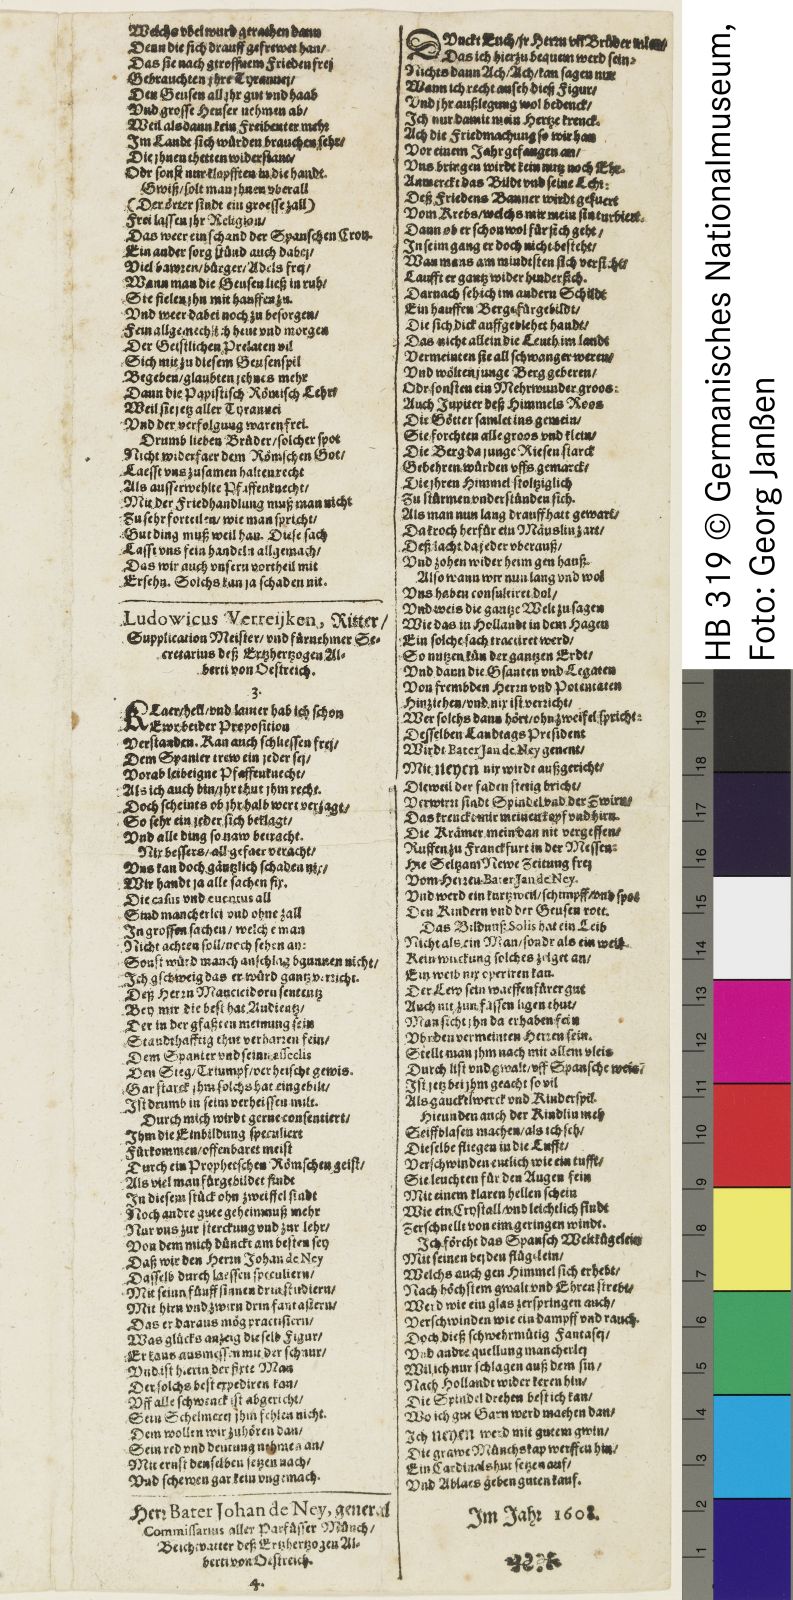 Welchs vbel wurd gerathen dann
Denn die sich drauff gefrewet han/
Das sie nach getroffnem Frieden frej
Gebrauchten jhre Tyrannej/
Den Geusen all jhr gut vnd haab
Vnd grosse Heuser nehmen ab/
Weil alsdann kein Freibeuter mehr
Im Lande sich würden brauchen sehr/
Die jhnen thetten widerstant/
Odr sonst nur klopfften in die handt.
Gwiß/ solt man jhnen vberall
(Der örter sindt ein groesse zall)
Frei lassen jhr Religion/
Das weer ein schand der Spanschen Cron.
Ein ander sorg stünd auch dabej/
Viel bawren/ bürger/ Adels frej/
Wann man die Geusen ließ in ruh/
Sie fielen jhn mit hauffen zu.
Vnd weer dabei noch zu besorgen/
Fein allgemechlich heut vnd morgen
Der Geistlichen Prelaten vil
Sich mit zu diesem Geusenspil
Begeben/ glaubten jehnes mehr
Dann die Papistisch Römisch Lehr/
Weil sie jetz aller Tyrannei
Vnd der verfolgung waren frei.
Drumb lieben Brüder/ solcher spot
Nicht widerfaer dem Römschen Got/
Laesst vns zusamen halten recht
Als ausserwehlte Pfaffenknecht/
Mit der Friedhandlung muß man nicht
Zu sehr forteilen/ wie man spricht/
Gut ding muß weil han. Diese sach
Lasst vns fein handeln allgemach/
Das wir auch vnsern vortheil mit
Ersehn. Solchs kan ja schaden nit.
Ludowicus Verreijken, Ritter/
Supplication Meister/ vnd fürnehmer Se-
cretarius deß Ertzhertzogen Al-
berti von Oestreich.
3.
KLaer/ hell/ vnd lauter hab ich schon
Ewr beider Proposition
Verstanden. Kan auch schliessen frej/
Dem Spanier trew ein jeder sej/
Vorab leibeigne Pfaffenknecht/
Als ich auch bin/ jhr thut jhm recht.
Doch scheints ob jhr halb wert verzagt/
So sehr ein jeder sich beklagt/
Vnd alle ding so naw betracht.
Nix bessers/ all gefaer veracht/
Vns kan doch gäntzlich schaden nix/
Wir handt ja alle sachen fix.
Die casus vnd euentus all
Sind mancherlei vnd ohne zall
In grossen sachen/ welche man
Nicht achten soll/ noch sehen an:
Sonst würd manch anschlag bgunnen nicht/
Ich gschweig das er würd gantz verricht.
Deß Herrn Mancicidoru sententz
Bey mir die best hat Audientz/
Der in der gfaßten meinung sein
Standthafftig thut verharren fein/
Dem Spanier vnd seinn asseclis
Den Sieg/ Triumpf/ verheischt gewis.
Gar starck jhm solchs hat eingebilt/
Ist drumb in seim verheissen milt.
Durch mich wirdt gerne consentiert/
Ihm die Einbildung speculiert
Fürkommen/ offenbaret meist
Durch ein Prophetschen Römschen geist/
Als viel man fürgebildet findt
In diesem stück ohn zweiffel sindt
Noch andre gute geheimnuß mehr
Nur vns zur sterckung vnd zur lehr/
Von dem mich dünckt am besten sey
Daß wir den Herrn Johan de Ney
Dasselb durch laessen speculiern/
Mit seinn fünff sinnen drin studiern/
Mit hirn vnd zwirn drin fantasiern/
Das er daraus mög practisiern/
Was glücks anzeig dieselb Figur/
Er kans ausmessen mit der schnur/
Vnd ist hierin der fixte Man
Der solchs best expediren kan/
Vff alle schwenck ist abgericht/
Sein Schelmerej jhm fehlen nicht.
Dem wollen wir zuhören dan/
Sein red vnd deutung nehmen an/
Mit ernst denselben setzen nach/
Vnd schewen gar kein vngemach.
Herr Bater Johan de Ney, general
Commissarius aller Parfüsser Münch/
Beichvatter deß Ertzhertzogen Al-
berti von Oestreich.
4.
DVnckt Euch/ jr Herrn vff Brüder mein/
Das ich hierzu bequem werd sein:
Nichts dann Ach/ Ach/ kan sagen nur
Wann ich recht anseh dieß Figur/
Vnd jhr außlegung wol bedenck/
Ich nur damit mein Hertze krenck.
Ach die Friedmachung so wir han
Vor einem Jahr gefangen an/
Vns bringen wirdt kein nutz noch Ehr.
Anmerckt das Bildt vnd seine Lehr:
Deß Friedens Banner wirdt gefuert
Vom Krebs/ welchs mir mein sin turbiert.
Dann ob er schon wol für sich geht/
In seim gang er doch nicht besteht/
Wan mans am mindisten sich versicht/
Laufft er gantz wider hindersich.
Darnach seh ich im andern Schildt
Ein hauffen Berge fürgebildt/
Die sich dick auffgeblehet handt/
Das nicht allein die Leuth im landt
Vermeinten sie all schwanger weren/
Vnd wölten junge Berg geberen/
Odr sonsten ein Mehrwunder groos:
Auch Jupiter deß Himmels Roos
Die Götter samlet ins gemein/
Sie forchten alle groos vnd klein/
Die Berg da junge Riesen starck
Gebehren würden vffs gemarck/
Die jhren Himmel stoltziglich
Zu stürmen vnderstünden sich.
Als man nun lang drauff hatt gewart/
Da kroch herfür ein Mäuslin zart/
Deß lacht da jeder vberauß/
Vnd zohen wider heim gen hauß.
Also wann wir nun lang vnd wol
Vns haben consulriret dol/
Vnd weis die gantze Welt zu sagen
Wie das in Hollandt in dem Hagen
Ein solche sach tractiret werd/
So nutzen kün der gantzen Erdt/
Vnd dann die Gsanten vnd Legaten
Von frembden Herrn vnd Potentaten
Hinziehen/ vnd nix ist verricht/
Wer solchs dann hört/ ohn zweifel spricht:
Desselben Landtags President
Wirdt Bater Jan de Ney genent/
Mit neyen nix wirdt außgericht/
Dieweil der faden stetig bricht/
Verwirrt sindt Spindel vnd der Zwirn/
Das krenckt mir meinen kopf vnd hirn.
Die Krämer mein dan nit vergessen/
Ruffen zu Franckfurt in der Messen:
Hie Seltzam Newe Zeitung frej
Vom Herren Bater Jan de Ney.
Vnd werd ein kurtzweil/ schimpff/ vnd spot
Den Kindern vnd der Geusen rott.
Das Bildnuß Solis hat ein Leib
Nicht als ein Man/ sondr als ein weib.
Kein würckung solches zeiget an/
Ein weib nix operiren kan.
Der Lew sein waeffen fürer gut
Auch nit zun füssen ligen thut/
Man sicht jhn da erhaben fein
Vbr den vermeinten Herren sein.
Stellt man jhm nach mit allem vleis
Durch list vnd gwalt/ vff Spansche weis/
Ist jetz bei jhm geacht so vil
Als gauckelwerck vnd Kinderspil.
Hie vnden auch der Kindlin meh
Seiffblasen machen/ als ich seh/
Dieselbe fliegen in die Lufft/
Verschwinden entlich wie ein tufft/
Sie leuchten für den Augen fein
Mit einem klaren hellen schein
Wie ein Crystall/ vnd leichtlich sindt
Zerschnellt von eim geringen windt.
Ich förcht das Spansch Weltkügelein
Mit seinen beiden flügelein/
Welchs auch gen Himmel sich erhebt/
Nach höchstem gwalt vnd Ehren strebt/
Werd wie ein glas zerspringen auch/
Verschwinden wie ein dampff vnd rauch.
Doch dieß schwehrmütig Fantasej/
Vnd andre quellung mancherlej
Wil ich nur schlagen auß dem sin/
Nach Hollandt wider keren hin/
Die Spindel drehen best ich kan/
Wo ich gut Garn werd machen dan/
Ich neyen werd mit gutem gwin/
Die grawe Münchskap werffen hin/
Ein Cardinalshut setzen auf/
Vnd Ablaes geben guten kauf.
Im Jahr 1608.
HB 319 © Germanisches Nationalmuseum,
Foto: Georg Janßen
19
18
17
16
15
14
13
12
11
10
9
8
7
6
5
4
3
2
1